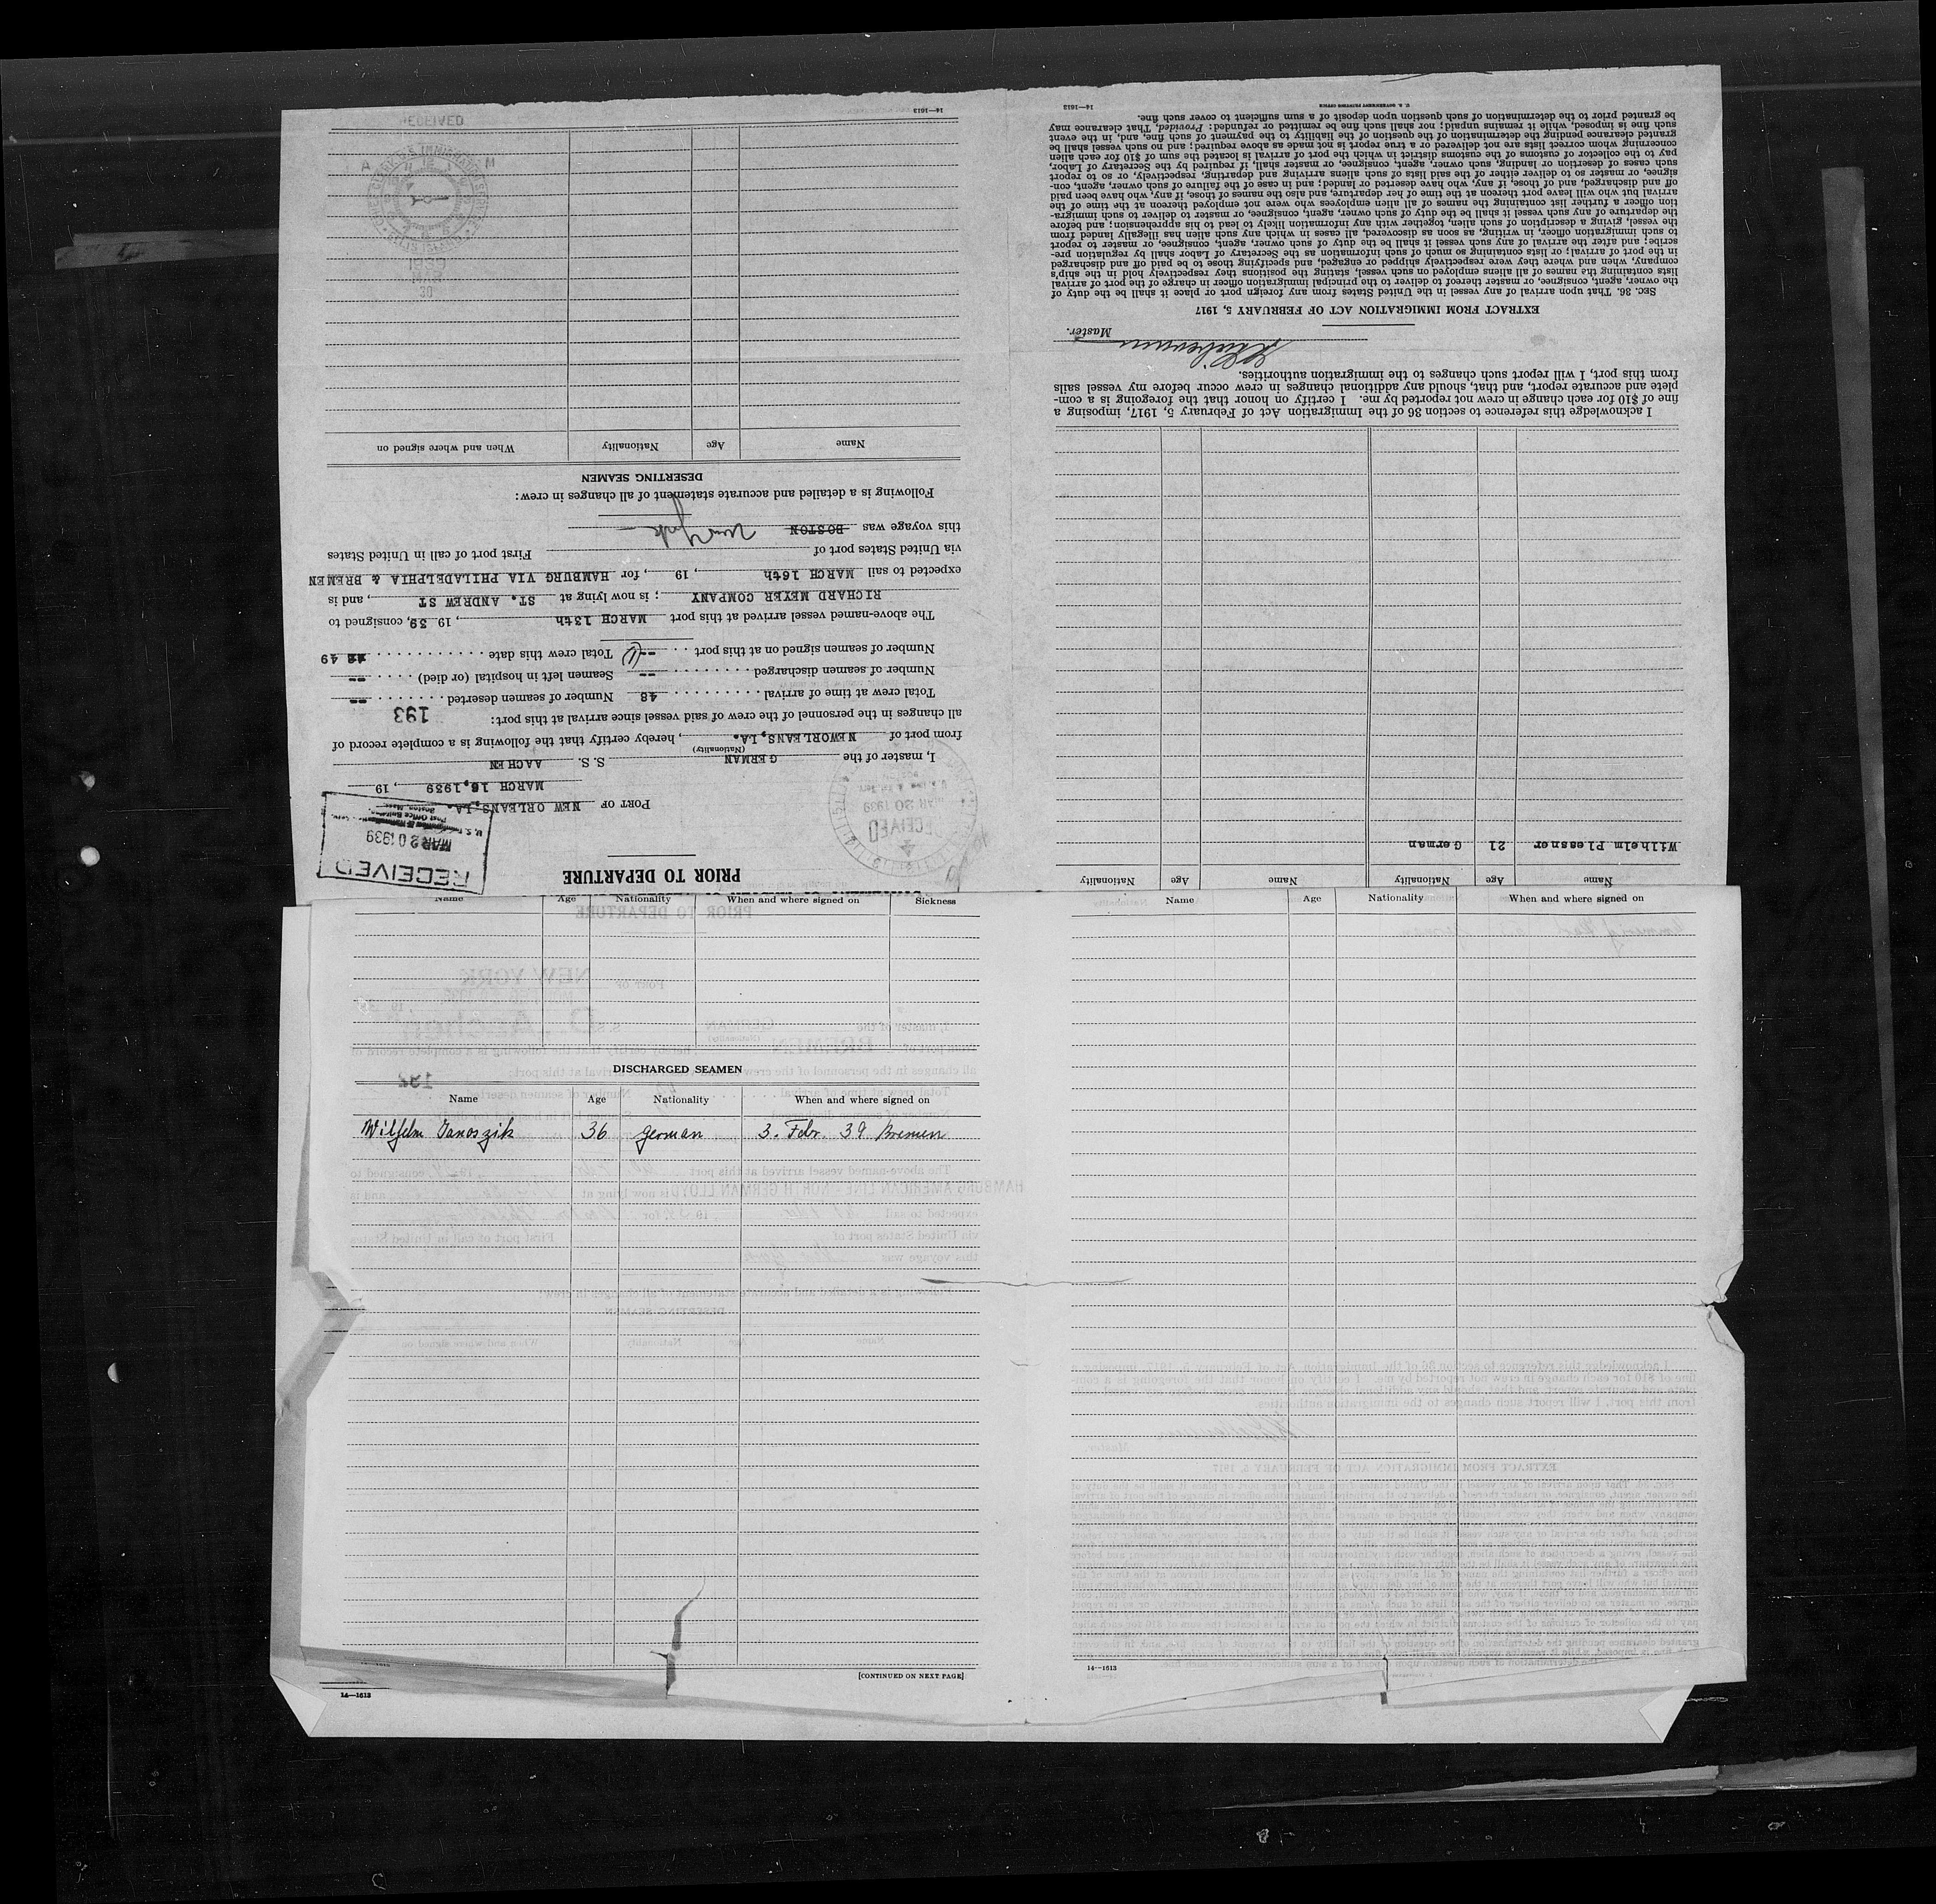 PRIOR TO DEPARTURE
RECEIVED
MAR 20 1939
Post Office Building
Boston, Mass.
RECEIVED
MAR 20 1939
PORT OF NEW ORLEANS, LA.
MARCH 16, 1939, 19
I, master of the GERMAN S. S. AACHEN
(Nationality)
from port of NEWORLEANS, LA., hereby certify that the following is a complete record of
all changes in the personnel of the crew of said vessel since arrival at this port:
193
Total crew at time of arrival 48 Number of seamen deserted --
Number of seamen discharged -- Seamen left in hospital (or died) --
Number of seamen signed on at this port -- (1) Total crew this date 49
The above-named vessel arrived at this port MARCH 13th, 19 39, consigned to
RICHARD MEYER COMPANY; is now lying at ST. ANDREW ST, and is
expected to sail MARCH 16th, 19, for HAMBURG VIA PHILADELPHIA & BREMEN
via United States port of First port of call in United States
this voyage was BOSTON New York
Following is a detailed and accurate statement of all changes in crew:
DESERTING SEAMEN
Name Age Nationality When and where signed on
U.S. IMMIGRATION SERVICE
ELLIS ISLAND
A M
30
RECEIVED
14—1613
Name Age Nationality Name Age Nationality
Wilhelm Plesner 21 German
I acknowledge this reference to section 36 of the Immigration Act of February 5, 1917, imposing a
fine of $10 for each change in crew not reported by me. I certify on honor that the foregoing is a com-
plete and accurate report, and that, should any additional changes in crew occur before my vessel sails
from this port, I will report such changes to the immigration authorities.
Master.
EXTRACT FROM IMMIGRATION ACT OF FEBRUARY 5, 1917
SEC. 36. That upon arrival of any vessel in the United States from any foreign port or place it shall be the duty of
the owner, agent, consignee, or master thereof to deliver to the principal immigration officer in charge of the port of arrival
lists containing the names of all aliens employed on such vessel, stating the positions they respectively hold in the ship's
company, when and where they were respectively shipped or engaged, and specifying those to be paid off and discharged
in the port of arrival; or lists containing so much of such information as the Secretary of Labor shall by regulation pre-
scribe; and after the arrival of any such vessel it shall be the duty of such owner, agent, consignee, or master to report
to such immigration officer, in writing, as soon as discovered, all cases in which any such alien has illegally landed from
the vessel, giving a description of such alien, together with any information likely to lead to his apprehension; and before
the departure of any such vessel it shall be the duty of such owner, agent, consignee, or master to deliver to such immigra-
tion officer a further list containing the names of all alien employees who were not employed thereon at the time of the
arrival but who will leave port thereon at the time of her departure, and also the names of those, if any, who have been paid
off and discharged, and of those, if any, who have deserted or landed; and in case of the failure of such owner, agent, con-
signee, or master so to deliver either of the said lists of such aliens arriving and departing, respectively, or so to report
such cases of desertion or landing, such owner, agent, consignee, or master shall, if required by the Secretary of Labor,
pay to the collector of customs of the customs district in which the port of arrival is located the sum of $10 for each alien
concerning whom correct lists are not delivered or a true report is not made as above required; and no such vessel shall be
granted clearance pending the determination of the question of the liability to the payment of such fine, and, in the event
such fine is imposed, while it remains unpaid; nor shall such fine be remitted or refunded: Provided, That clearance may
be granted prior to the determination of such question upon deposit of a sum sufficient to cover such fine.
U. S. GOVERNMENT PRINTING OFFICE 14—1613
Name Age Nationality When and where signed on Sickness
DISCHARGED SEAMEN
Name Age Nationality When and where signed on
Wilhelm Janoszik 36 german 3. Febr. 39 Bremen
[CONTINUED ON NEXT PAGE]
14—1613
Name Age Nationality When and where signed on
14—1613